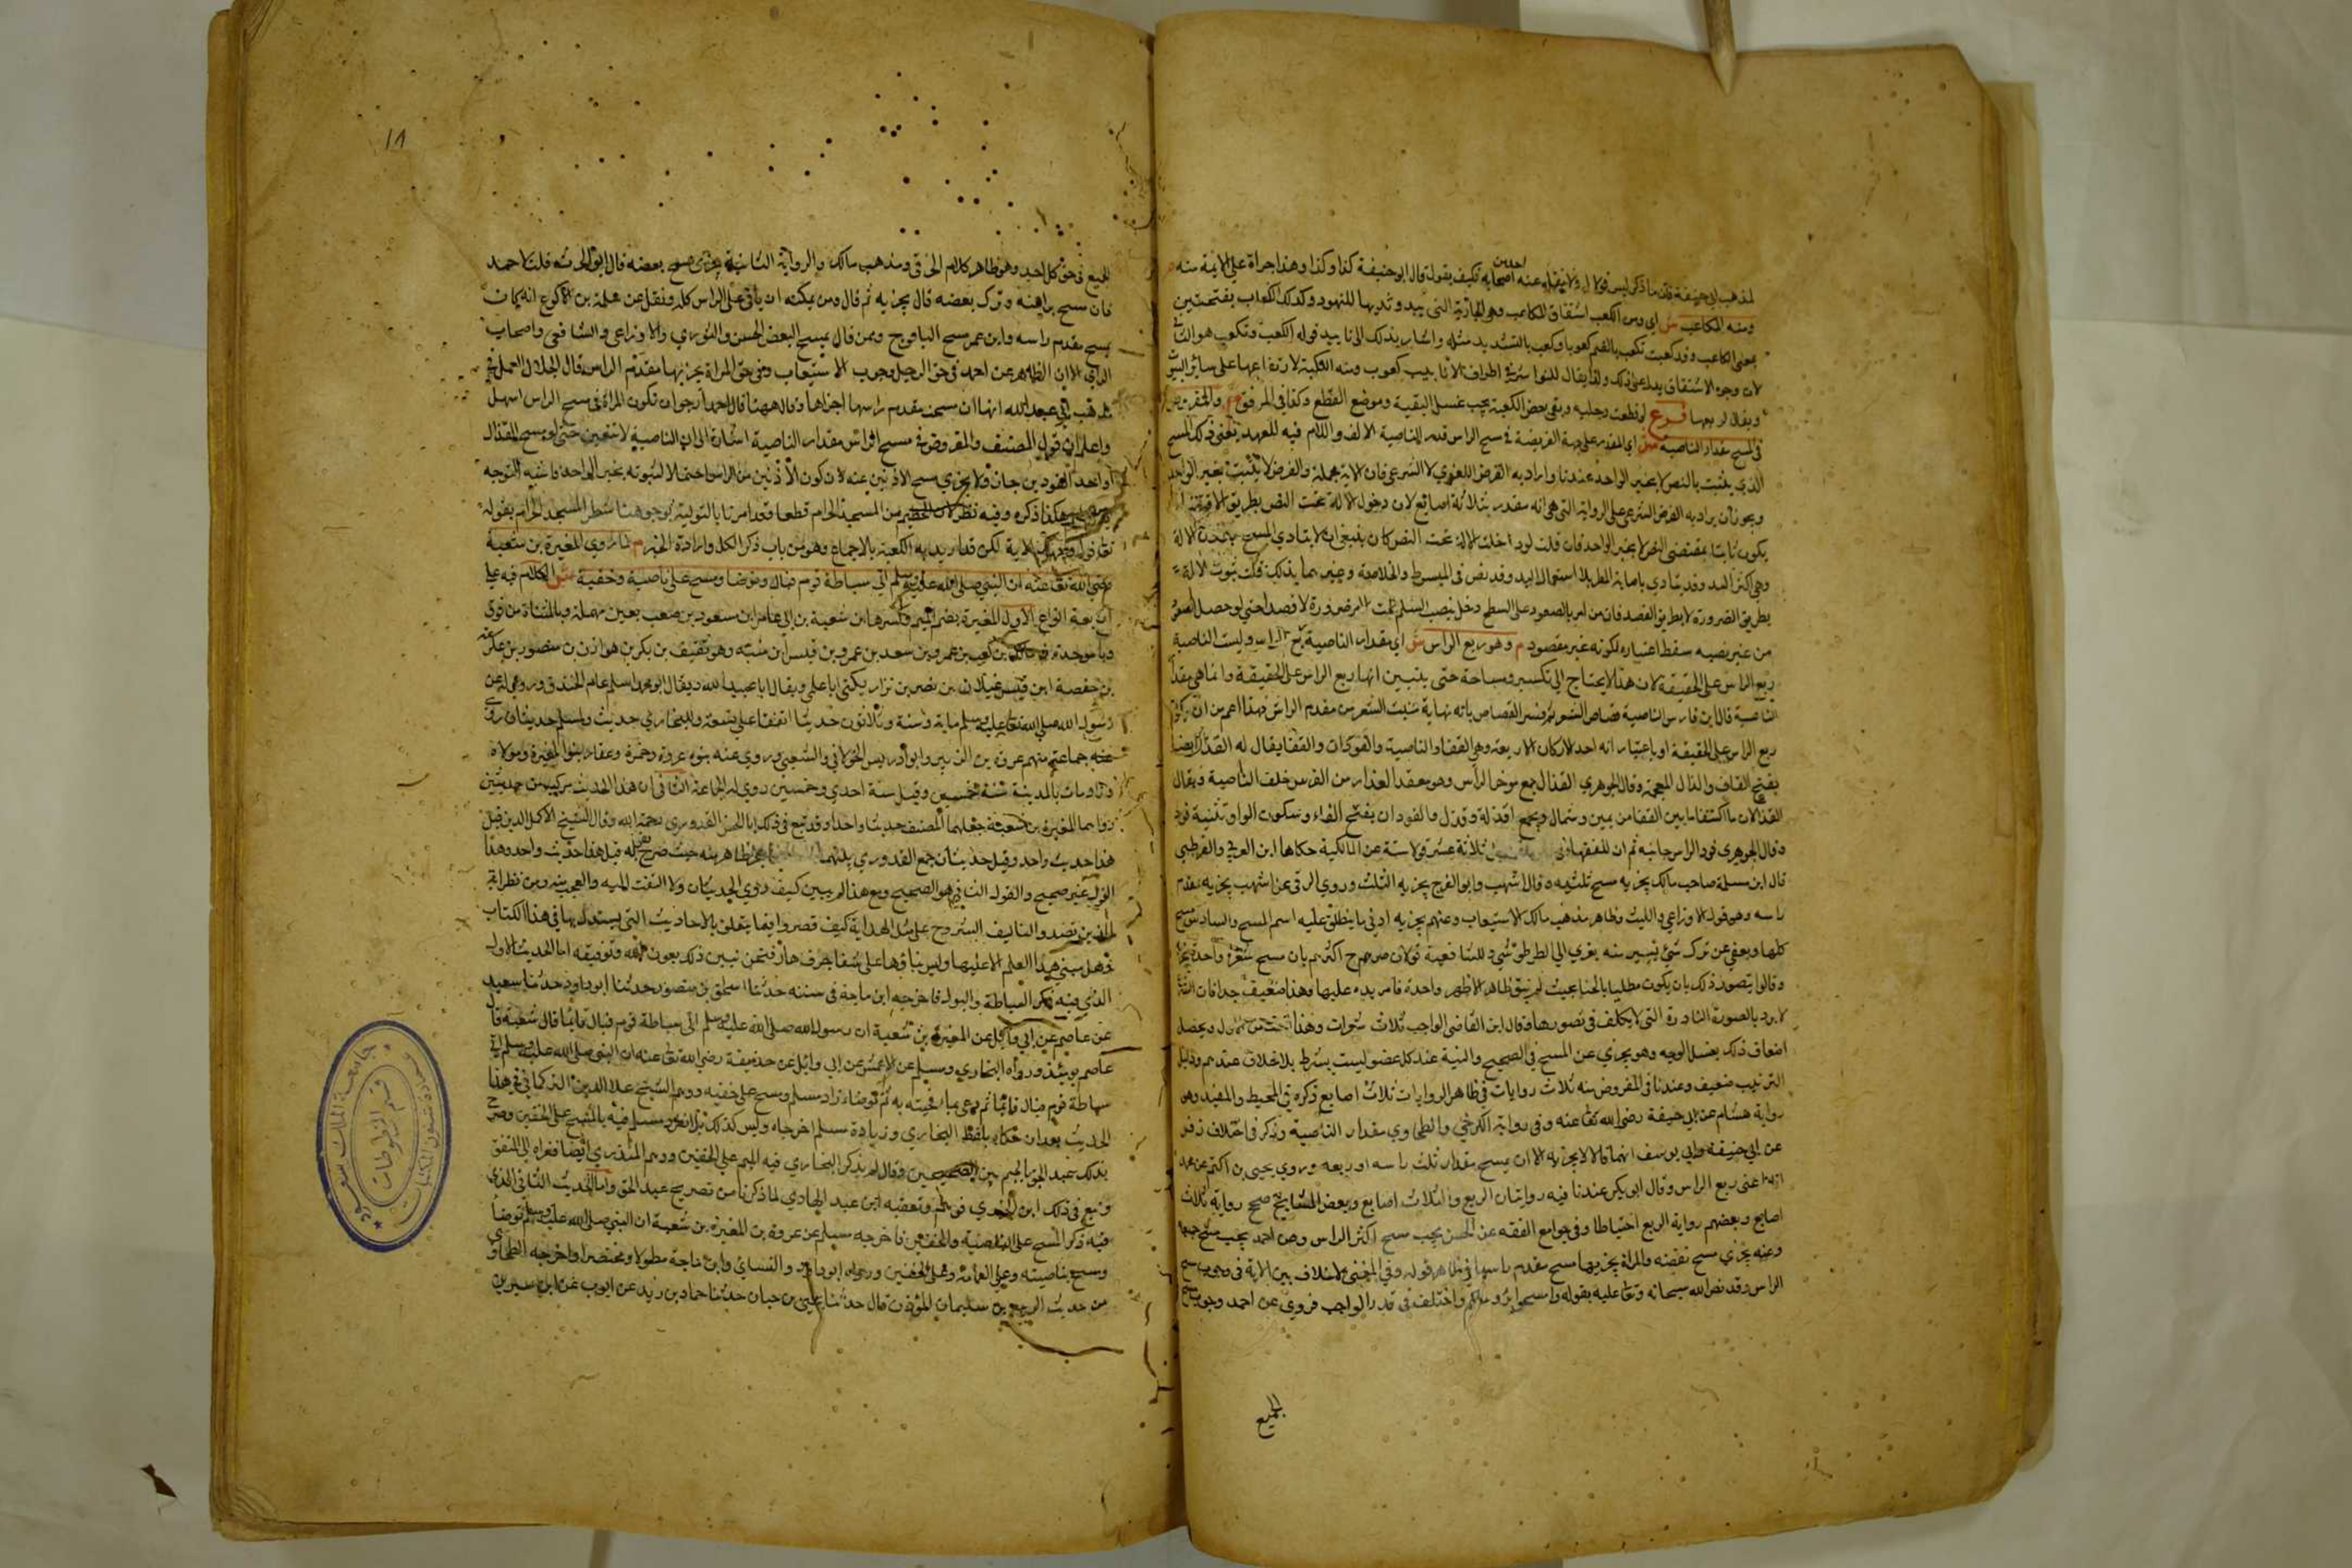 لمذهب ابي حنيفة فان ما ذكر ليس قولا له ولا نقله عنه احد من اصحابه فكيف يقول قال ابو حنيفة كذا وكذا وهذا جراة على الايمة منه
ومنه المكاعب ش اي ومن الكعب اشتقاق المكاعب وهي الجارية التي يبدو ثديها للنهود وكذلك الكعاب بفتحتين
بمعنى الكاعب وقد كعبت تكعب بالضم كعوبا وكعب بالتشديد مثله واشار بذلك الى تاييد قوله الكعب
لان وجوه الاشتقاق يدل على ذلك ولهذا يقال للنواشز في اطراف الانابيب كعوب ومنه الكعبة لارتفاعها على سائر البيوت
ويقال لتربيعها فرع لو قطعت رجليه وبقي بعض الكعبة يجب غسل البقية وموضع القطع وكذا في المرفق م والمفروض
في المسح مقدار الناصية ش اي المقدر على جهة الفريضة في مسح الراس قدر الناصية الالف واللام فيه للعهد يعني ذلك المسح
الذي يثبت بالنص لا بخبر الواحد عندنا واراد به الفرض اللغوي لا الشرعي فان الاية مجملة والفرض لا يثبت بخبر الواحد
ويجوز ان يراد به الفرض الشرعي على الرواية التي هي انه مقدر بثلاثة اصابع لان دخول الالة تحت النص بطريق الاقتضاء
يكون ثابتا بمقتضى النص لا بخبر الواحد فان قلت لو دخلت الالة تحت النص كان ينبغي ان لا يتادي المسح الا بهذه الالة
وهي اكثر اليد وقد يتادي باصابة المطر بلا استعمال اليد وقد نص في المبسوط والخلاصة وغيرهما بذلك قلت ثبوت الالة
بطريق الضرورة لا بطريق القصد فان من امر بالصعود على السطح دخل نصب السلم تحت الامر ضرورة لا قصدا حتى لو حصل الصعود
من غير نصبه سقط اعتباره لكونه غير مقصود م وهو ربع الراس ش اي مقدار الناصية ربع الراس وليست الناصية
ربع الراس على الحقيقة لان هذا لا يحتاج الى تكسير ومساحة حتى يتبين انها ربع الراس على الحقيقة وانما هي مقدار
الناصية قال ابن فارس الناصية قصاص الشعر ثم فسر القصاص بانه نهاية منبت الشعر من مقدم الراس فهذا اعم من ان يكون
ربع الراس على الحقيقة او باعتبار انه احد الاركان الاربعة وهي القفا والناصية والفودان والقفا يقال له القذال ايضا
بفتح القاف والذال المعجمة وقال الجوهري القذال جمع موخر الراس وهو معقد العذار من الفرس خلف الناصية ويقال
القذالان ما اكتنفا ما بين القفا من يمين وشمال ويجمع اقذلة وقذل والفودان بفتح الفاء وسكون الواو تثنية فود
وقال الجوهري فود الراس جانبه ثم ان للفقهاء ثلاثة عشر قولا ستة عن المالكية حكاها ابن العربي والقرطبي
قال ابن مسلمة صاحب مالك يجزيه مسح ثلثيه وقال اشهب وابو الفرج يجزيه الثلث وروي البرقي عن اشهب يجزيه مقدم
راسه وهو قول الاوزاعي والليث وظاهر مذهب مالك الاستيعاب وعنهم يجزيه ادنى ما ينطلق عليه اسم المسح والسادس مسح
كلها ويعفى عن ترك شيء يسير منه يعزي الى الطرطوشي وللشافعية قولان صرح اكثرهم بان مسح شعرة واحدة يجزي
وقالوا يتصور ذلك بان يكون مطليا بالحنا بحيث لم يبق ظاهرا الا شعرة واحدة فامر يده عليها وهذا ضعيف جدا فان الشرع
لا يرد بالصورة النادرة التي لا يتكلف في تصورها وقال ابن القاضي الواجب ثلاث شعرات وهذا اخف من الاول ويحصل
اضعاف ذلك بغسل الوجه وهو يجزي عن المسح في الصحيح والنية عند كل عضو ليست بشرط بلا خلاف عندهم ودليل
الترتيب ضعيف وعندنا في المفروض منه ثلاث روايات في ظاهر الروايات ثلاث اصابع ذكره في المحيط والمفيد وهو
رواية هشام عن ابي حنيفة رضي الله تعالى عنه وفي رواية الكرخي والطحاوي مقدار الناصية وذكر في اختلاف زفر
عن ابي حنيفة وابي يوسف انهما قالا لا يجزيه الا ان يمسح مقدار ثلث راسه او ربعه وروي يحيى بن اكثم عن محمد
انه اعتبر ربع الراس وقال ابو بكر عندنا فيه روايتان الربع والثلاث اصابع وبعض المشايخ صحح رواية ثلاث
اصابع وبعضهم رواية الربع احتياطا وفي جوامع الفقه عن الحسن يجب مسح اكثر الراس وعن احمد يجب مسح جميعه
وعنه يجزي مسح بعضه والمراة يجزيها مسح مقدم راسها في ظاهر قوله وفي المغني لا خلاف بين الامة في وجوب مسح
الراس وقد نص الله سبحانه وتعالى عليه بقوله وامسحوا برؤسكم واختلف في قدر الواجب فروي عن احمد وجوب مسح
الجميع
١٨
الجميع في حق كل احد وهو ظاهر كلام الخرقي ومذهب مالك والرواية الثانية يجزي مسح بعضه قال ابو الحرث قلت لاحمد
فان مسح براسه وترك بعضه قال يجزيه ثم قال ومن يمكنه ان ياتي على الراس كله ونقل عن سلمة بن الاكوع انه كان
يمسح مقدم راسه وابن عمر مسح اليافوخ وممن قال بمسح البعض الحسن والثوري والاوزاعي والشافعي واصحاب
الراي الا ان الظاهر عن احمد في حق الرجل وجوب الاستيعاب وفي حق المراة يجزيها مقدم الراس قال الخلال العمل في
مذهب ابي عبد الله انها ان مسحت مقدم راسها اجزاها وقال مهنا قال احمد ارجوا ان تكون المراة في مسح الراس اسهل
واعلم ان قول المصنف والمفروض في مسح الراس مقدار الناصية اشارة الى ان الناصية لا تتعين حتى لو مسح القذال
او احد الفودين جاز ولا يجزي مسح الاذنين عنه لان كون الاذنين من الراس احتمالا لثبوته بخبر الواحد فاشبه التوجه
هكذا ذكره وفيه نظر لان الحطيم من المسجد الحرام قطعا وقد امرنا بالتولية بوجوهنا شطر المسجد الحرام بقوله
تعالى فول وجهك الاية لكن قد اريد به الكعبة بالاجماع وهو من باب ذكر الكل وارادة الجزء م لما روي المغيرة بن شعبة
رضي الله تعالى عنه ان النبي صلى الله عليه وسلم اتى سباطة قوم فبال وتوضا ومسح على ناصيته وخفيه ش الكلام فيه على
اربعة انواع الاول المغيرة بضم الميم وكسرها ابن شعبة بن ابي عامر ابن مسعود بن معتب بعين مهملة وبالمثناة من فوق
وباء موحدة بن مالك بن كعب بن عمرو بن سعد بن عمرو بن قيس ابن منبه وهو ثقيف بن بكر بن هوازن بن منصور بن عكرمة
بن حفصة ابن قيس عيلان بن مضر بن نزار يكنى ابا علي ويقال ابا عبد الله ويقال ابو محمد اسلم عام الخندق وروي له عن
رسول الله صلى الله تعالى عليه وسلم ماية وستة وثلاثون حديثا اتفقا على تسعة وللبخاري حديث ولمسلم حديثان روى
عنه جماعة منهم عروة بن الزبير وابو ادريس الخولاني والشعبي وروي عنه بنوه عروة وحمزة وعقار بنوا المغيرة ومولاه
وراد ومات بالمدينة سنة خمسين وقيل سنة احدى وخمسين روي له الجماعة الثاني ان هذا الحديث مركب من حديثين
رواهما المغيرة بن شعبة جعلهما المصنف حديثا واحدا وقد تبع في ذلك ابا الحسن القدوري رحمه الله وقال الشيخ الاكمل الدين قيل
هذا حديث واحد وقيل حديثان جمع القدوري بينهما حيث صرح بقوله قيل هذا حديث واحد وهذا
القول غير صحيح والقول الثاني هو الصحيح ومع هذا لم يبين كيف روي الحديثان ولا التفت اليه والعجب منه ومن نظرائه
الذين تصدوا لتاليف الشروح على مثل الهداية كيف قصروا فيما يتعلق بالاحاديث التي يستدل بها في هذا الكتاب
وهل مبنى هذا العلم الا عليها وليس بناؤها على شفا جرف هار فنحن نبين ذلك بعون الله وتوفيقه اما الحديث الاول
الذي فيه ذكر السباطة والبول فاخرجه ابن ماجة في سننه حدثنا اسحق بن منصور حدثنا ابو داود حدثنا سعيد
عن عاصم عن ابي وائل عن المغيرة بن شعبة ان رسول الله صلى الله عليه وسلم اتى سباطة قوم فبال قائما قال شعبة قال
عاصم يومئذ ورواه البخاري ومسلم عن الاعمش عن ابي وائل عن حذيفة رضي الله تعالى عنه ان النبي صلى الله عليه وسلم اتى
سباطة قوم فبال قائما ثم دعى بماء فجئته به ثم توضاء زاد مسلم ومسح على خفيه ووهم الشيخ علا الدين التركماني في هذا
الحديث بعد ان حكاه بلفظ البخاري وزيادة مسلم اخرجاه وليس كذلك بل انفرد مسلم فيه بالمسح على الخفين وصرح
بذلك عبد الحق بالجمع بين الصحيحين وقال لم يذكر البخاري فيه المسح على الخفين ووهم المنذري ايضا فعزاه الى المتفق
وتبع في ذلك ابن الجوزي فوهم وتعقبه ابن عبد الهادي لما ذكرنا من تصريح عبد الحق واما الحديث الثاني الذي
فيه ذكر المسح على الناصية والخفين فاخرجه مسلم عن عروة بن المغيرة بن شعبة ان النبي صلى الله عليه وسلم توضا
ومسح بناصيته وعلى العمامة وعلى الخفين ورواه ابو داود والنسائي وابن ماجة مطولا ومختصرا واخرجه الطحاوي
من حديث الربيع بن سليمان المؤذن قال حدثنا يحيى بن حسان حدثنا حماد بن زيد عن ايوب عن ابن سيرين
جامعة الملك سعود
عمادة شئون المكتبات
قسم المخطوطات